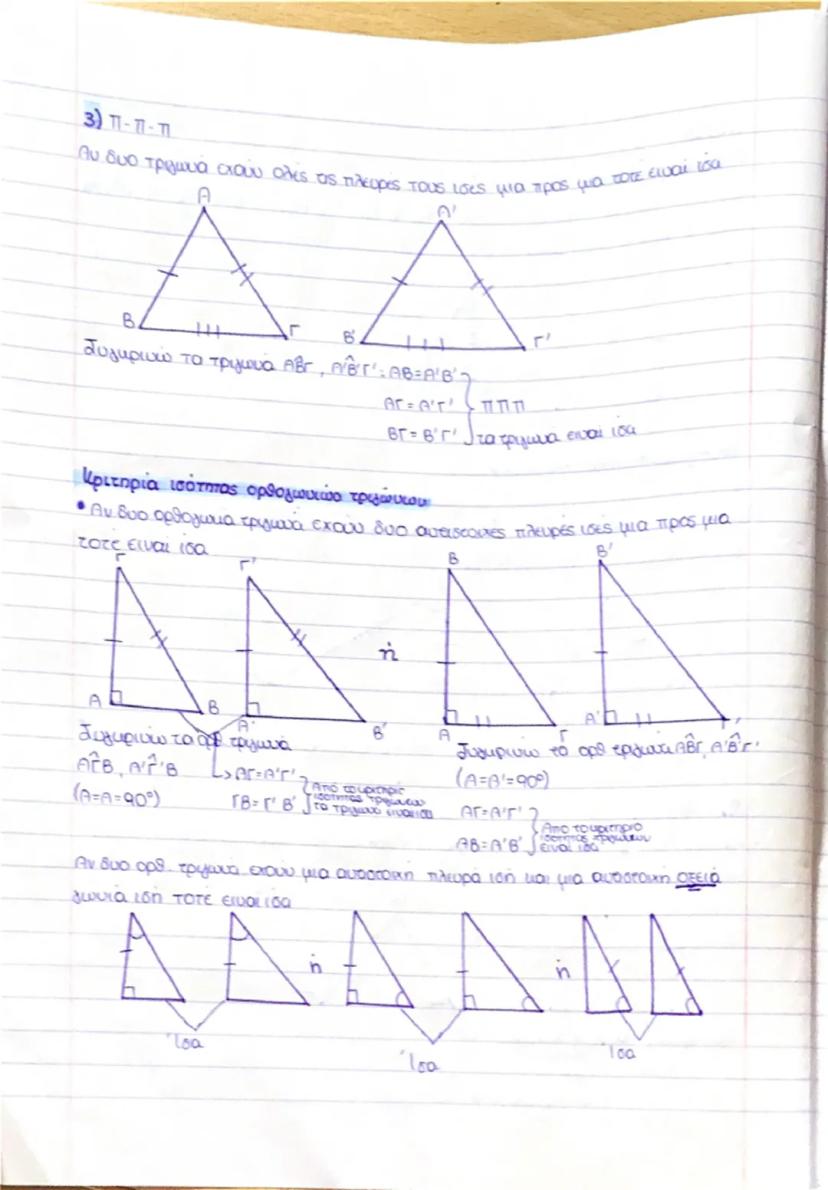 3) Π-Π-Π
Αν δυο τριγωνα εχουν ολες τις πλευρες τους ισες μια προς μια τοτε ειναι ισα
Α Α'
Β Γ Β' Γ'
Συγκρινω τα τριγωνα ΑΒ̂Γ, Α'Β̂'Γ': ΑΒ=Α'Β'
ΑΓ=Α'Γ' } ΠΠΠ
ΒΓ=Β'Γ' τα τριγωνα ειναι ισα
Κριτηρια ισότητας ορθογωνιων τριγώνων
• Αν δυο ορθογωνια τριγωνα εχουν δυο αντιστοιχες πλευρές ισες μια προς μια
τοτε ειναι ισα
Γ Γ' Β Β'
ή
Α Β Α' Β' Α Γ Α' Γ'
Συγκρινω τα ορθ τριγωνα
ΑΓ̂Β, Α'Γ̂'Β
(Α=Α=90°)
ΑΓ=Α'Γ'
ΓΒ=Γ'Β'
Απο το κριτηριο
ισοτητας τριγωνων
τα τριγωνα ειναι ισα
Συγκρινω τα ορθ τριγωνα ΑΒ̂Γ, Α'Β̂'Γ'
(Α=Α'=90°)
ΑΓ=Α'Γ'
ΑΒ=Α'Β'
Απο το κριτηριο
ισοτητας τριγωνων
ειναι ισα
Αν δυο ορθ. τριγωνα εχουν μια αντιστοιχη πλευρά ιση και μια αντιστοιχη οξειά
γωνιά ιση τοτε ειναι ισα
ή ή
Ίσα Ίσα Ίσα